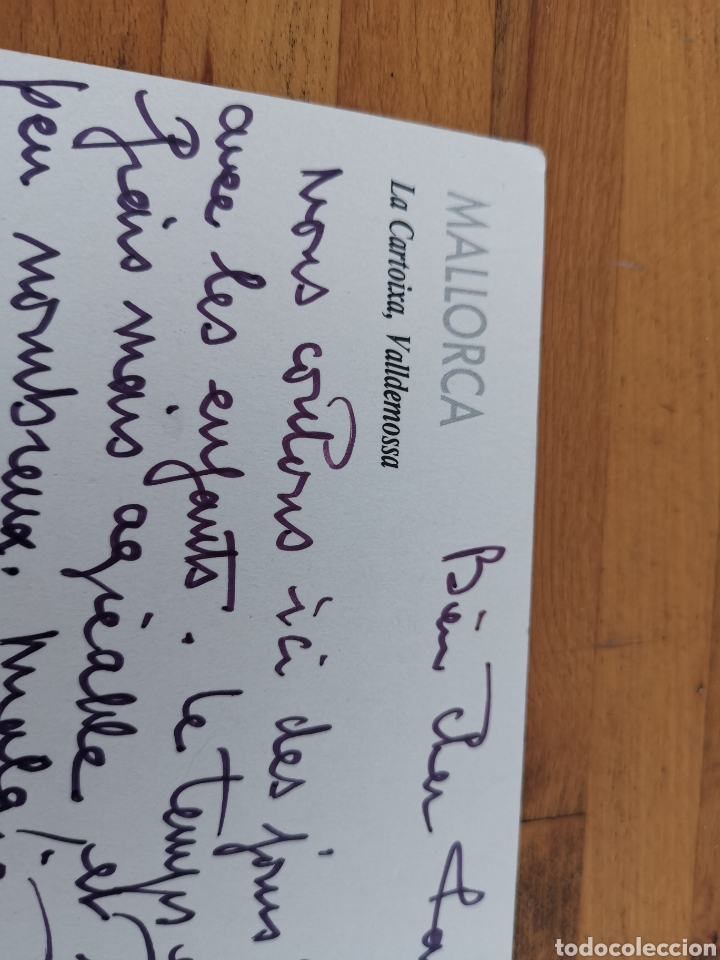 MALLORCA
La Cartoixa, Valldemossa
Bien cher
Nous coulons ici des jours
avec les enfants. Le temps
frais mais agréable, et
peu nombreux.
todocoleccion